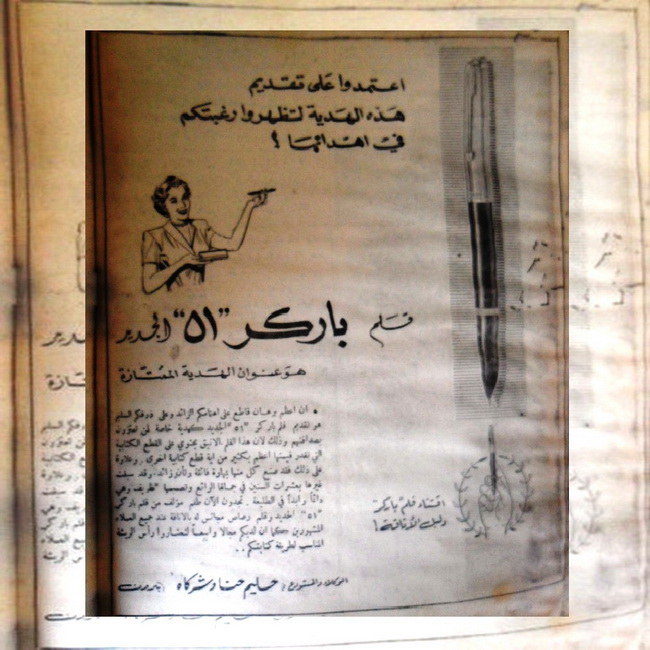 اعتمدوا على تقديم
هذه الهدية لتظهروا رغبتكم
في اهدائها ؟
قلم باركر "٥١" الجديد
هو عنوان الهدية الممتازة
• ان اعظم برهان قاطع على اهتمامكم الزائد وعلى ذوقكم السليم
هو تقديم قلم باركر "٥١" الجديد كهدية خاصة لمن تعتزون
بصداقتهم وذلك لان هذا القلم الانيق يحتوي على القطع الكتابية
التي تقدر قيمتها اعظم بكثير من اية قطع كتابية اخرى . وعلاوة
على ذلك فقد صنع كل منها بمهارة فائقة وتأن زائد . وقد سبقت
غيرها بعشرات السنين في جمالها الرائع وتصميمها الظريف وهي
دائماً وابداً في الطليعة . تجدون الآن طقم مؤلف من قلم باركر
"٥١" الجديد وقلم رصاص مجانس له بالاناقة عند جميع العملاء
المشهورين كما ان لديكم مجالا واسعاً لتختاروا رأس الريشة
المناسب لطريقة كتابتكم . .
اقتناء قلم "باركر"
دليل الأناقة !
الوكلاء والمستودع : حليم حنا وشركاه